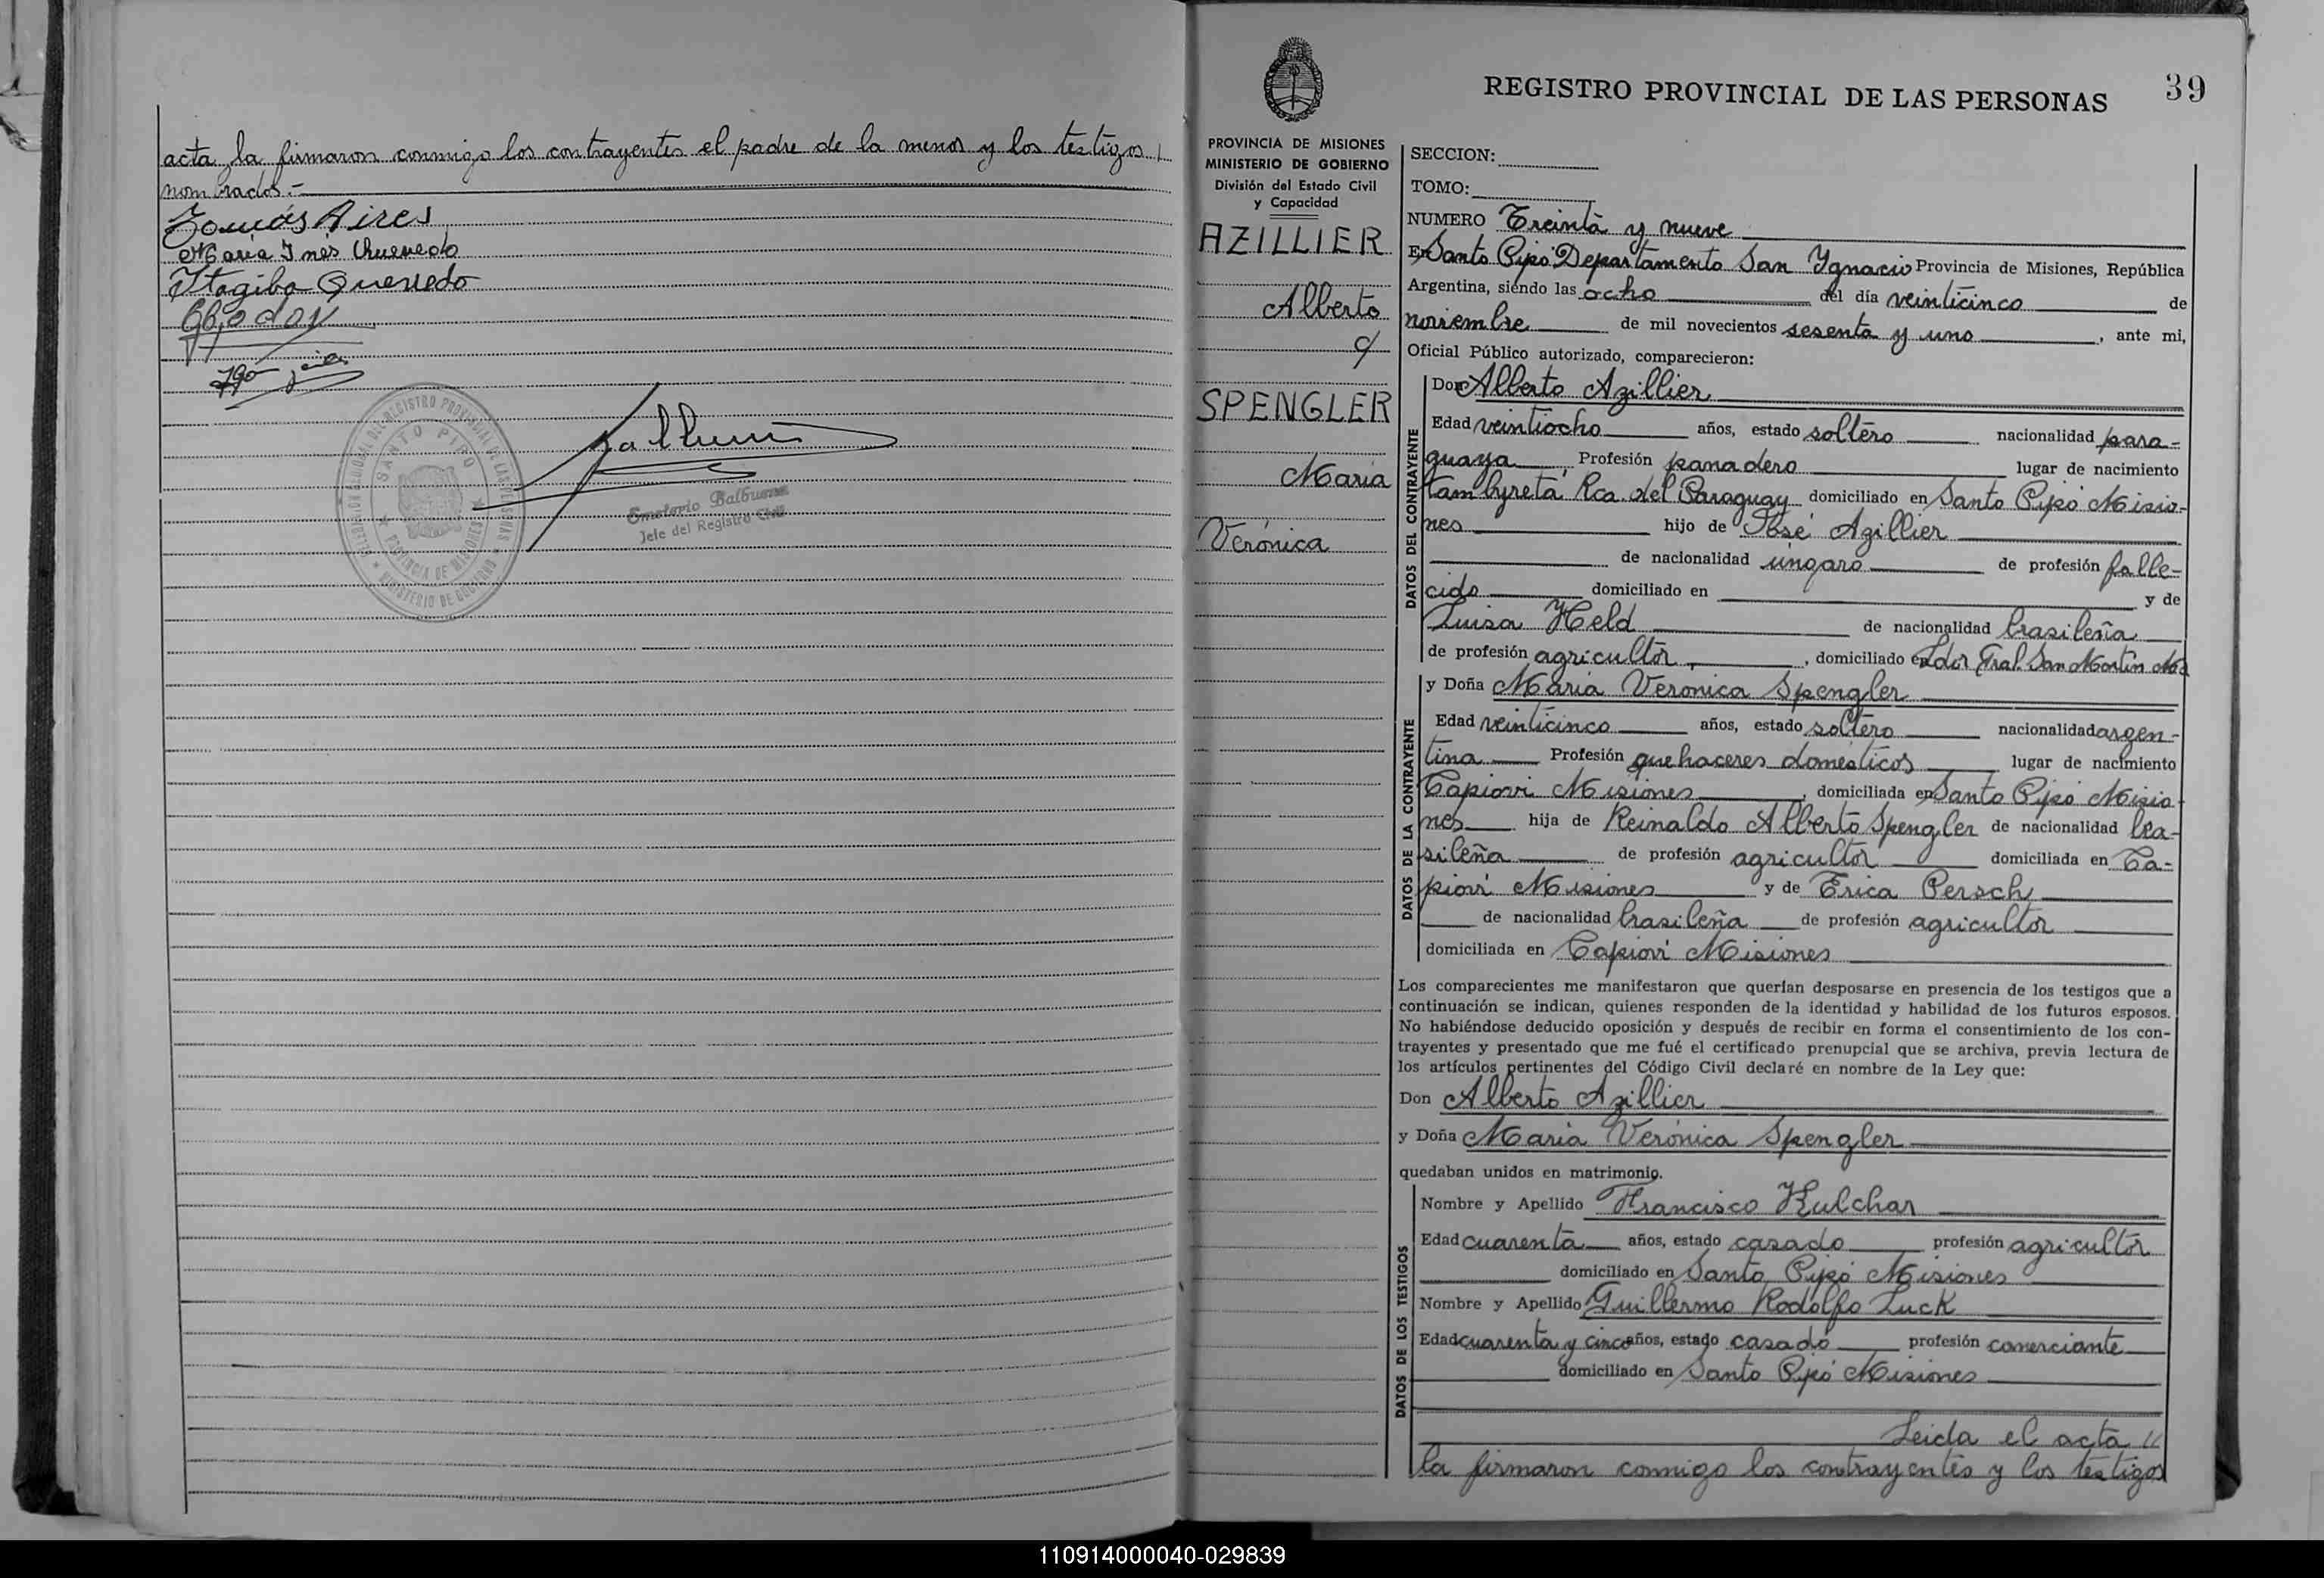 acta la firmaron conmigo los contrayentes el padre de la menor y los testigos
nombrados.-
Tomás Aires
María Inés Quevedo
Itagiba Quevedo
REGISTRO PROVINCIAL DE LAS PERSONAS
SANTO PIPO
PROVINCIA DE MISIONES
MINISTERIO DE GOBIERNO
Jefe del Registro Civil
39
REGISTRO PROVINCIAL DE LAS PERSONAS
PROVINCIA DE MISIONES
MINISTERIO DE GOBIERNO
División del Estado Civil
y Capacidad
AZILLIER
Alberto
c/
SPENGLER
María
Verónica
SECCION:
TOMO:
NUMERO Treinta y nueve
En Santo Pipó Departamento San Ygnacio Provincia de Misiones, República
Argentina, siendo las ocho del día veinticinco de
noviembre de mil novecientos sesenta y uno, ante mi,
Oficial Público autorizado, comparecieron:
DATOS DEL CONTRAYENTE
Don Alberto Azillier
Edad veintiocho años, estado soltero nacionalidad para-
guaya, Profesión panadero lugar de nacimiento
Tambyretá Rca. del Paraguay domiciliado en Santo Pipó Misio-
nes hijo de José Azillier
de nacionalidad úngaro de profesión falle-
cido domiciliado en y de
Luisa Held de nacionalidad brasileña
de profesión agricultor, domiciliado en Ldor Gral. San Martín Mnes
DATOS DE LA CONTRAYENTE
y Doña María Verónica Spengler
Edad veinticinco años, estado soltero nacionalidad argen-
tina Profesión quehaceres domésticos lugar de nacimiento
Capiovi Misiones, domiciliada en Santo Pipó Misio-
nes hija de Reinaldo Alberto Spengler de nacionalidad bra-
sileña de profesión agricultor domiciliada en Ca-
pioví Misiones y de Erica Persch
de nacionalidad brasileña de profesión agricultor
domiciliada en Capioví Misiones
Los comparecientes me manifestaron que querían desposarse en presencia de los testigos que a
continuación se indican, quienes responden de la identidad y habilidad de los futuros esposos.
No habiéndose deducido oposición y después de recibir en forma el consentimiento de los con-
trayentes y presentado que me fué el certificado prenupcial que se archiva, previa lectura de
los artículos pertinentes del Código Civil declaré en nombre de la Ley que:
Don Alberto Azillier
y Doña María Verónica Spengler
quedaban unidos en matrimonio.
DATOS DE LOS TESTIGOS
Nombre y Apellido Francisco Kulchar
Edad cuarenta años, estado casado profesión agricultor
domiciliado en Santo Pipó Misiones
Nombre y Apellido Guillermo Rodolfo Luck
Edad cuarenta y cinco años, estado casado profesión comerciante
domiciliado en Santo Pipó Misiones
Leida el acta
la firmaron conmigo los contrayentes y los testigos
110914000040-029839